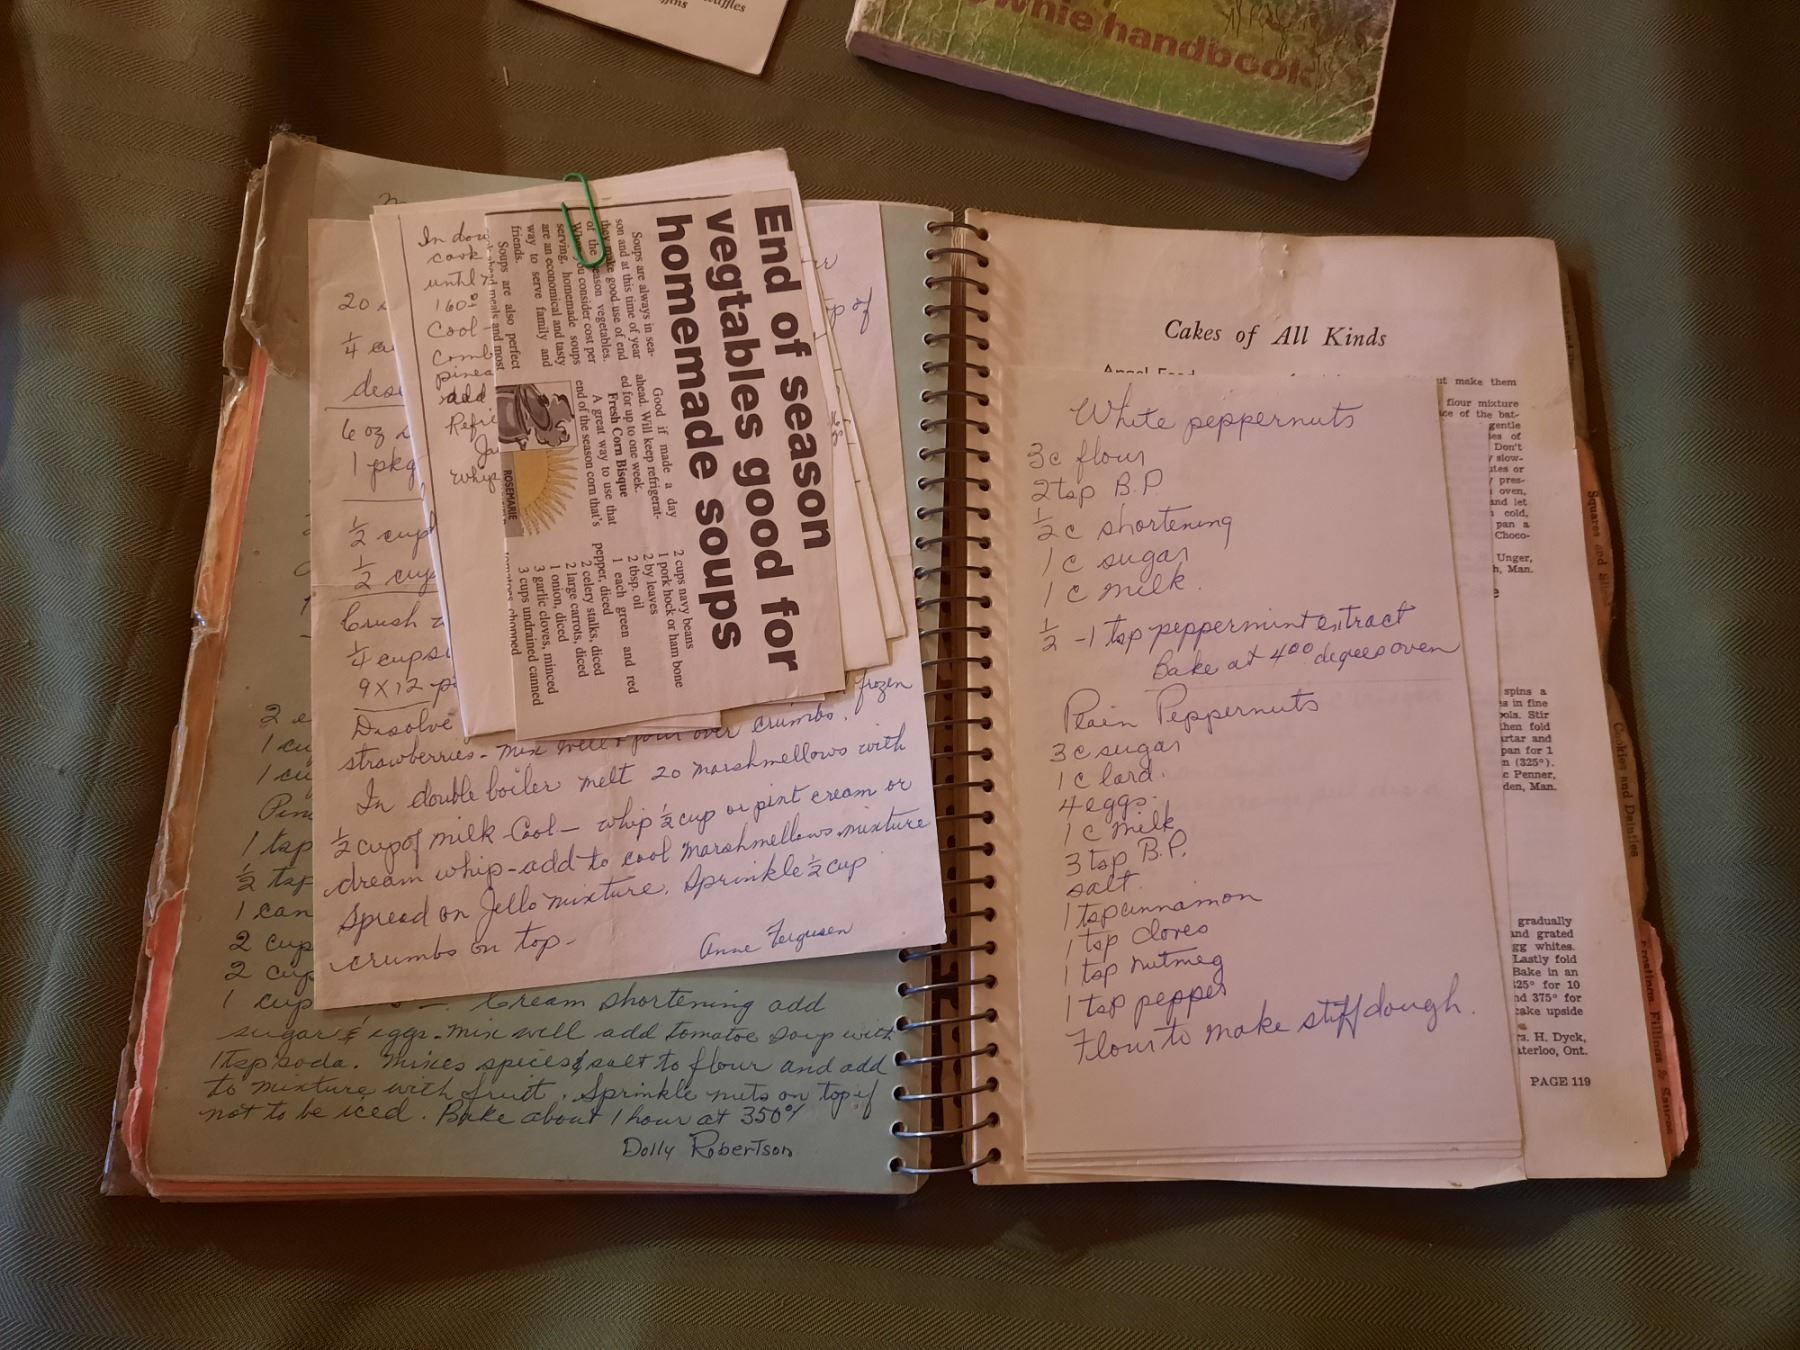 handbook
20
1/4
6 oz
1 pkg
1/2 cup
1/2 cup
Crush
1/4 cup
9 x 12
Disolve
crumbs. frozen
strawberries - mix well & pour over
In double boiler melt 20 marshmellows with
1/2 cup of milk - Cool - whip 1/2 cup or pint cream or
dream whip - add to cool marshmellows mixture
Spread on Jello mixture. Sprinkle 1/2 cup
crumbs on top -
Anne Fergusen
In
cook
until
160°
Cool -
add
whip
End of season
vegtables good for
homemade soups
Soups are always in sea-
son and at this time of year
they make good use of end
of the season vegetables.
When you consider cost per
serving, homemade soups
are an economical and tasty
way to serve family and
friends.
Soups are also perfect
meals and most
Good if made a day
ahead. Will keep refrigerat-
ed for up to one week.
Fresh Corn Bisque
A great way to use that
end of the season corn that's
ROSEMARIE
2 cups navy beans
1 pork hock or ham bone
2 by leaves
2 tbsp. oil
1 each green and red
pepper, diced
2 celery stalks, diced
2 large carrots, diced
1 onion, diced
3 garlic cloves, minced
3 cups undrained canned
tomatoes chopped
2
1 cup
1 cup
1 tsp
1/2 tsp
1 can
2 cup
2 cup
1 cup
Cream shortening add
sugar & eggs. mix well add tomatoe soup with
1 tsp soda. Mixes spices & salt to flour and add
to mixture with fruit. Sprinkle nuts on top if
not to be iced. Bake about 1 hour at 350°
Dolly Robertson
Cakes of All Kinds
Angel Food
White peppernuts
3 c flour
2 tsp B.P.
1/2 c shortening
1 c sugar
1 c milk.
1/2 - 1 tsp peppermint extract
Bake at 400 degrees oven
Plain Peppernuts
3 c sugar
1 c lard.
4 eggs.
1 c milk
3 tsp B.P.
salt.
1 tsp cinnamon
1 tsp cloves
1 tsp nutmeg
1 tsp pepper
Flour to make stiff dough.
make them
flour mixture
of the bat-
gentle
of
Don't
slow-
or
pres-
oven,
and let
cold,
pan a
Choco-
Unger,
Man.
spins a
in fine
Stir
then fold
and
pan for 1
(325°).
Penner,
Man.
gradually
and grated
whites.
Lastly fold
Bake in an
for 10
375° for
cake upside
H. Dyck,
Ont.
PAGE 119
Squares and
Cookies and Dainties
Frostings, Fillings & Sauces